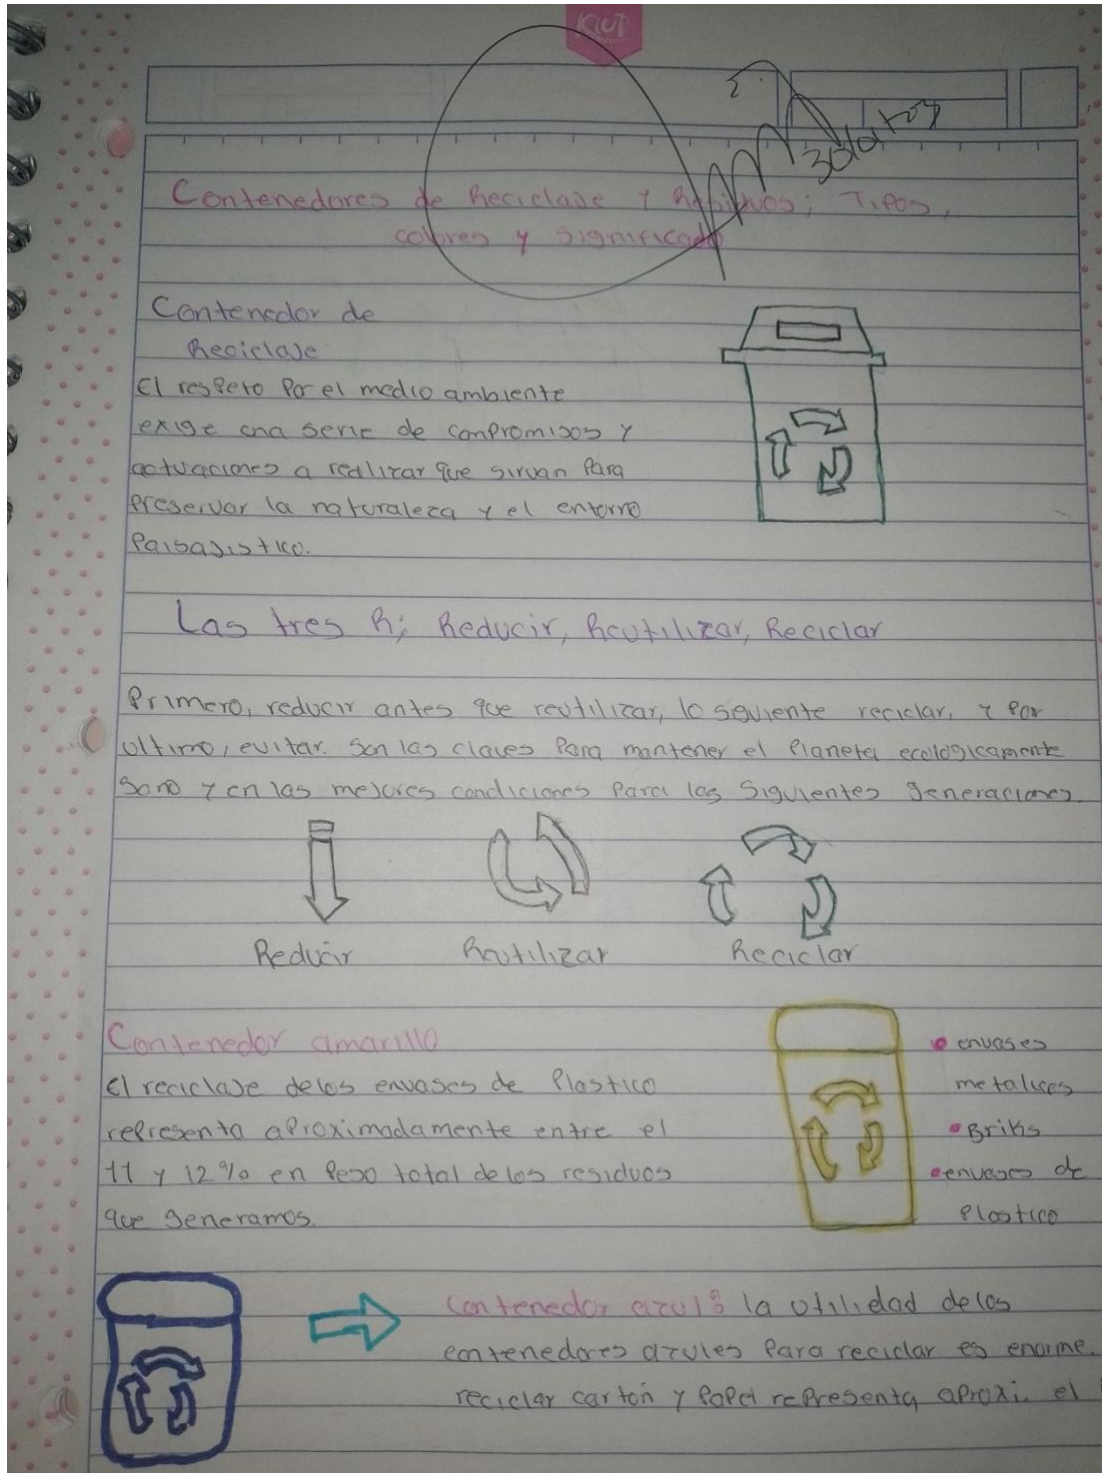 KIUT
Contenedores de Reciclaje y Residuos; Tipos,
colores y significado
Contenedor de
Reciclaje
El respeto por el medio ambiente
exige una serie de conpromisos y
actuaciones a realizar que sirvan para
preservar la naturaleza y el entorno
Paisajistico.
Las tres R; Reducir, Reutilizar, Reciclar
Primero, reducir antes que reutilizar, lo siguiente reciclar, y por
ultimo, evitar. Son las claves para mantener el planeta ecologicamente
sano y en las mejores condiciones para las siguientes generaciones.
Reducir Reutilizar Reciclar
Contenedor amarillo
El reciclaje delos envases de Plastico
representa aproximadamente entre el
11 y 12% en peso total delos residuos
que generamos.
envases
metalicos
Briks
envases de
Plastico
Contenedor azul: la utilidad delos
contenedores azules Para reciclar es enorme.
reciclar cartón y Papel representa aproxi. el